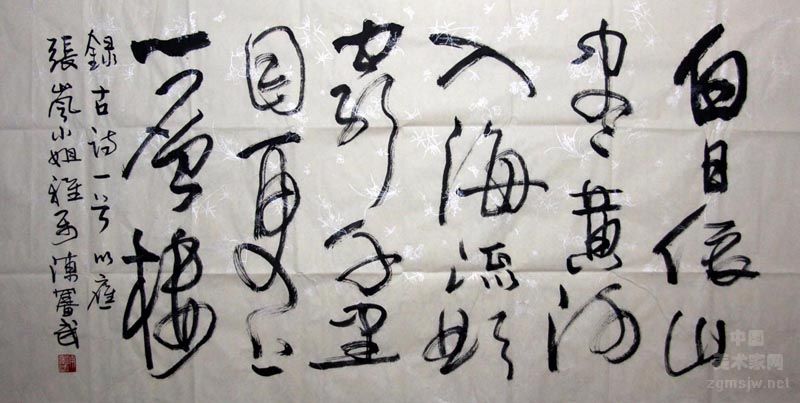 白日依山
尽黄河
入海流欲
窮千里
目更上
一層樓
錄古诗一首以應
張嵐小姐雅属 陳奮武
中国
美术家网
zgmsjw.net